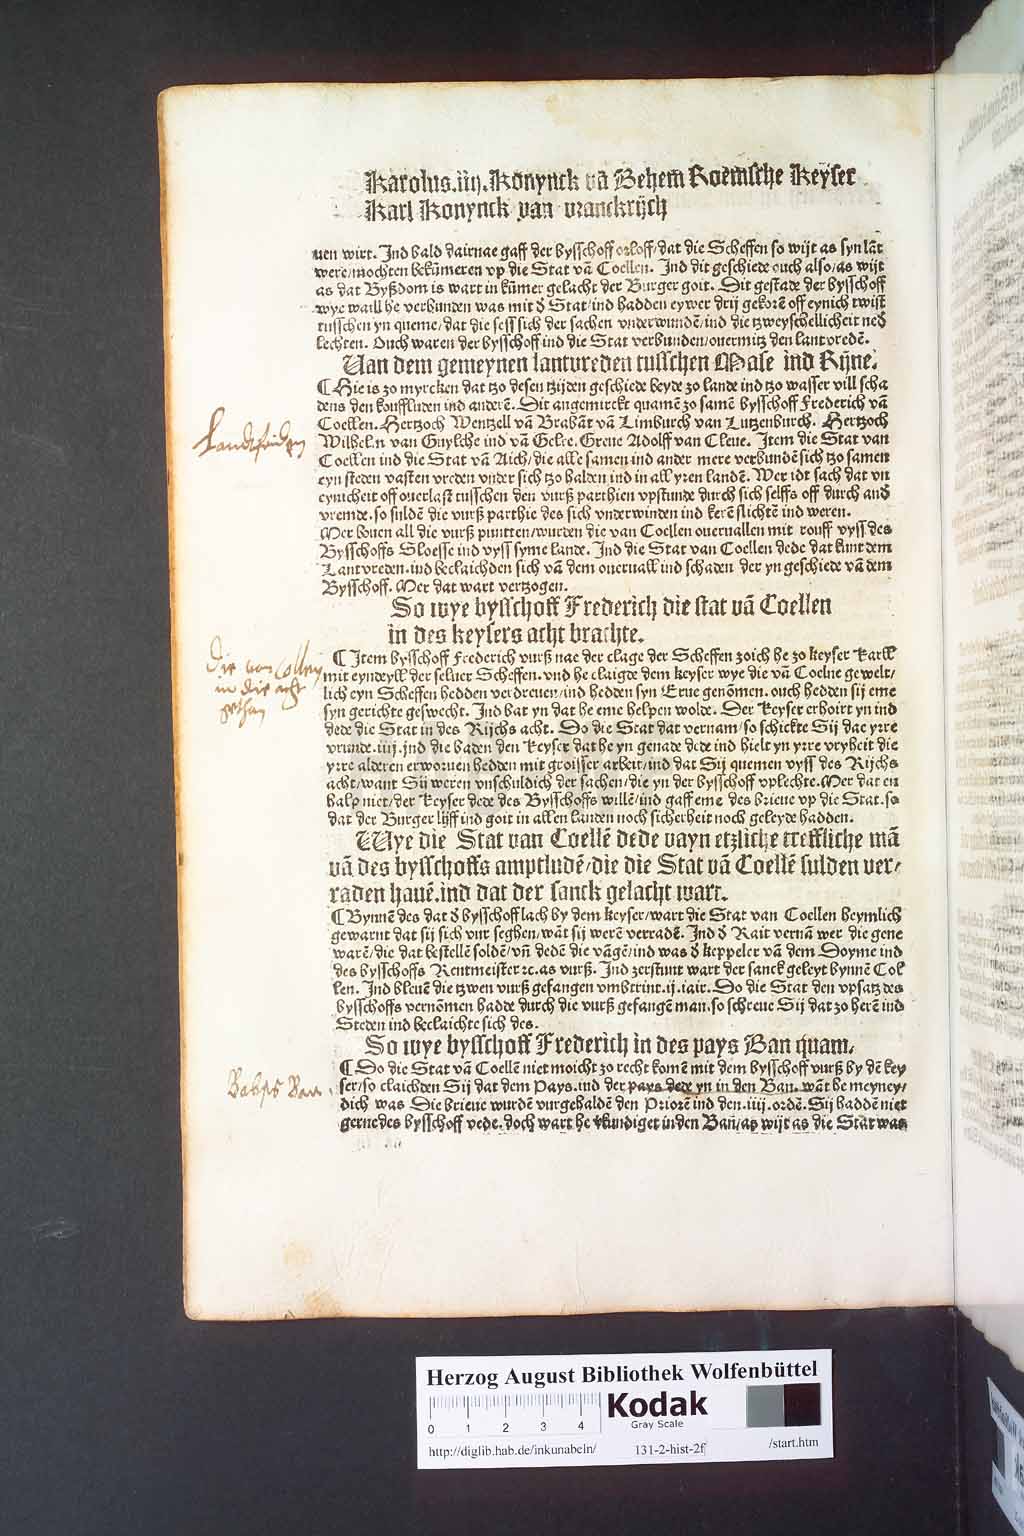 Karolus.iiij.Konynck vã Behem Roemsche Keyser
Karl Konynck van vranckrijch
uen wirt. Ind bald dairnae gaff der bysschoff orloff/dat die Scheffen so wijt as syn lãt
were/mochten bekũmeren vp die Stat vã Coellen. Ind dit geschiede ouch also/as wijt
as dat Byßdom is wart in kũmer gelacht der Burger goit. Dit gestade der bysschoff
wye waill he verbunden was mit d Stat/ind hadden eywer drij gekorẽ off eynich twist
tusschen yn queme/dat die sess sich der sachen vnderwundẽ/ind die tzweyschellicheit ned
lechten. Ouch waren der bysschoff ind die Stat verbunden/ouermitz den lantvredẽ.
Uan dem gemeynen lantvreden tusschen Mase ind Rijne.
¶ Hie is zo myrcken dat tzo desen tzijden geschiede beyde zo lande ind tzo wasser vill scha
dens den kouffluden ind anderẽ. Dit angemirckt quamẽ zo samẽ bysschoff Frederich vã
Coellen. Hertzoch Wentzell vã Brabãt vã Limburch van Lutzenburch. Hertzoch
Wilhelm van Guylche ind vã Gelre. Greue Adolff van Cleue. Item die Stat van
Coellen ind die Stat vã Aich/die alle samen ind ander mere verbundẽ sich tzo samen
eyn steden vasten vreden vnder sich tzo halden ind in all yren landẽ. Wer idt sach dat vn
eynicheit off ouerlast tusschen den vurß parthien vpstunde durch sich selffs off durch and
vremde. so suldẽ die vurß parthie des sich vnderwinden ind kerẽ slichtẽ ind weren.
Mer bouen all die vurß puntten/wurden die van Coellen oueruallen mit rouff vyss des
Bysschoffs Sloesse ind vyss syme lande. Ind die Stat van Coellen dede dat kunt dem
Lantvreden. ind beclaichden sich vã dem oueruall ind schaden der yn geschiede vã dem
Bysschoff. Mer dat wart vertzogen.
So wye bysschoff Frederich die stat vã Coellen
in des keysers acht brachte.
¶ Item bysschoff Frederich vurß nae der clage der Scheffen zoich he zo keyser Karll
mit eyndeyll der seluer Scheffen. vnd he claigde dem keyser wye die vã Coelne gewelt/
lich eyn Scheffen hedden verdreuen/ind hedden syn Erue genõmen. ouch hedden sij eme
syn gerichte geswecht. Ind bat yn dat he eme helpen wolde. Der keyser erhoirt yn ind
dede die Stat in des Rijchs acht. Do die Stat dat vernam/so schickte Sij dae yrre
vrunde.iiij.ind die baden den keyser dat he yn genade dede ind hielt yn yrre vryheit die
yrre alderen erworuen hedden mit groisser arbeit/ind dat Sij quemen vyss des Rijchs
acht/want Sij weren vnschuldich der sachen/die yn der bysschoff vplechte. Mer dat en
halp niet/der keyser dede des Bysschoffs willẽ/ind gaff eme des brieue vp die Stat. so
dat der Burger lijff ind goit in allen landen noch sicherheit noch geleyde hadden.
Wye die Stat van Coellẽ dede vayn etzliche treffliche mã
vã des bysschoffs amptludẽ/die die Stat vã Coellẽ sulden ver/
raden hauẽ. ind dat der sanck gelacht wart.
¶ Bynnẽ des dat d bysschoff lach by dem keyser/wart die Stat van Coellen heymlich
gewarnt dat sij sich vur seghen/wãt sij werẽ verradẽ. Ind d Rait vernã wer die gene
warẽ/die dat bestellẽ soldẽ/vñ dedẽ die vãgẽ/ind was d keppeler vã dem Doyme ind
des bysschoffs Rentmeister ꝛc. as vurß. Ind zerstunt wart der sanck geleyt bynnẽ Col
len. Ind bleuẽ die tzwen vurß gefangen vmbtrint.ij.iair. Do die Stat den vpsatz des
bysschoffs vernõmen hadde durch die vurß gefangẽ man. so schreue Sij dat zo herẽ ind
Steden ind beclaichte sich des.
So wye bysschoff Frederich in des pays Ban quam.
¶ Do die Stat vã Coellẽ niet moicht zo recht komẽ mit dem bysschoff vurß by dẽ key
ser/so claichden Sij dat dem Pays. ind der pays dede yn in den Ban. wãt he meyney/
dich was Die brieue wurdẽ vurgehaldẽ den Priorẽ ind den.iiij.ordẽ. Sij haddẽ niet
gerne des bysschoff vede. doch wart he vkundiget in den Bañ/as wijt as die Stat was
Landtfriden
Die von Collen
in die acht
gethan
Babsts Ban
Herzog August Bibliothek Wolfenbüttel
0 1 2 3 4
Kodak
Gray Scale
http://diglib.hab.de/inkunabeln/ 131-2-hist-2f /start.htm